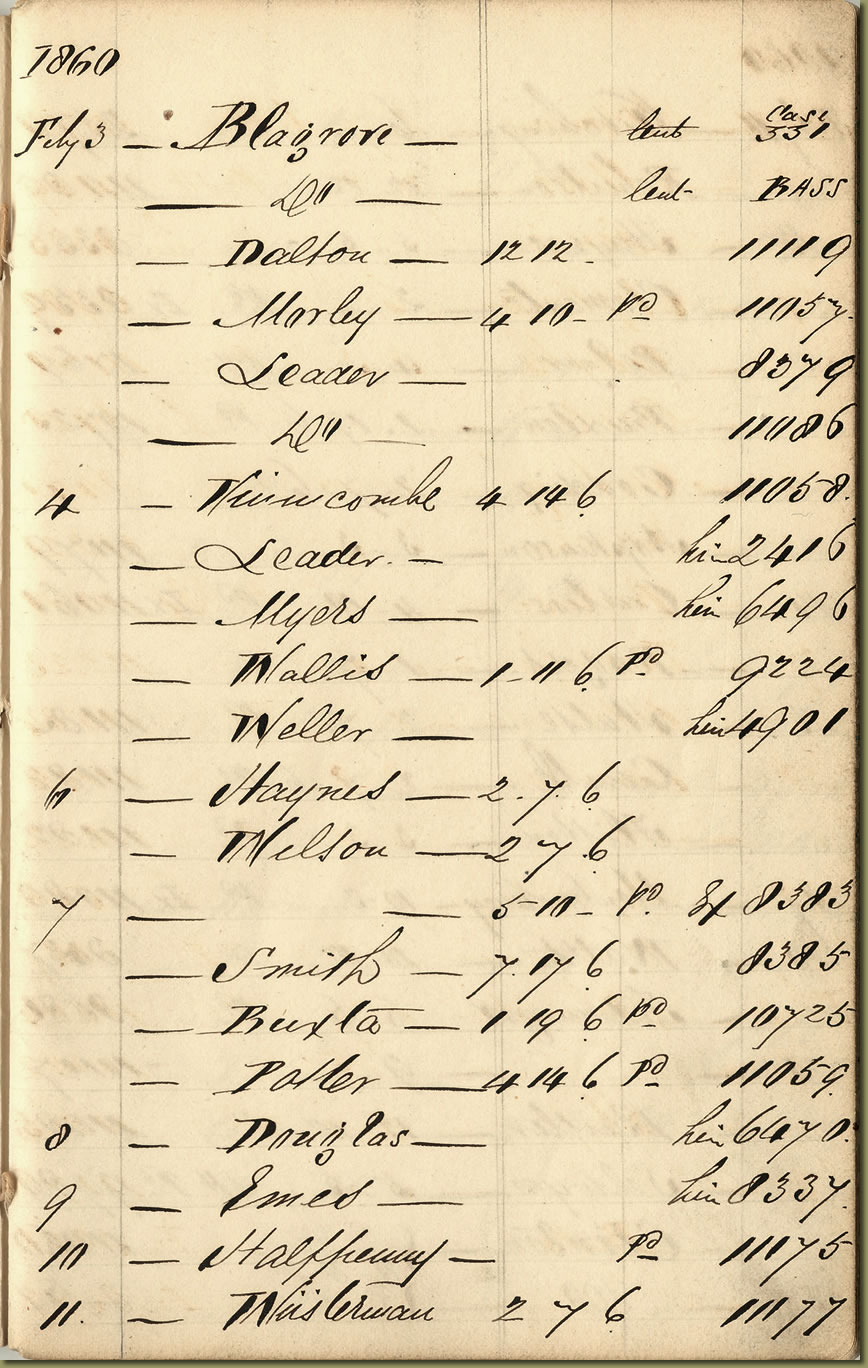 1860
Feby 3 — Blagrove — lent Case 331
— Do — lent BASS
— Dalton — 12 12 - 11119
— Morley — 4 10 - Pd 11057
— Leader — 8379
— Do — 11086
4 — 4 14 6 11058
— Leader. — hire 2416
— Myers — hire 6496
— Wallis — 1 - 11 6 Pd 9224
— Weller — hire 4901
6 — Haynes — 2 . 7 . 6
— Nelson — 2 7 . 6
7 — — 5 10 - Pd. Ex 8383
— Smith — 7 . 17 6 8385
— Buxta — 1 19 6 Pd 10725
— Potter — 4 14 6 Pd 11059
8 — Douglas — hire 6470
9 — Emes — hire 8337
10 — Halfpenny — Pd 11175
11. — 2 7 6 11177